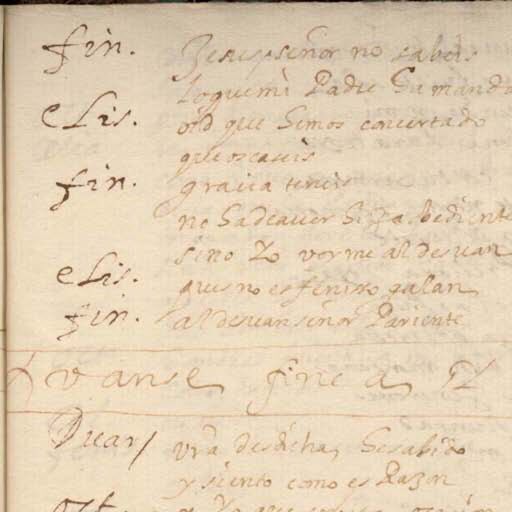 fin. Jesus señor no sabeis
lo que mi Padre Ha manda
elis. oid que Hemos concertado
que os caseis
fin. gracia teneis
no Ha de aver Hija obediente
sino Yo yorme al desuan
elis. pues no es feniso galan
fin. al desuan señor Pariente
vanse, finea,
Duar/ vrã desdicha, He sabido
y siento como es Razon